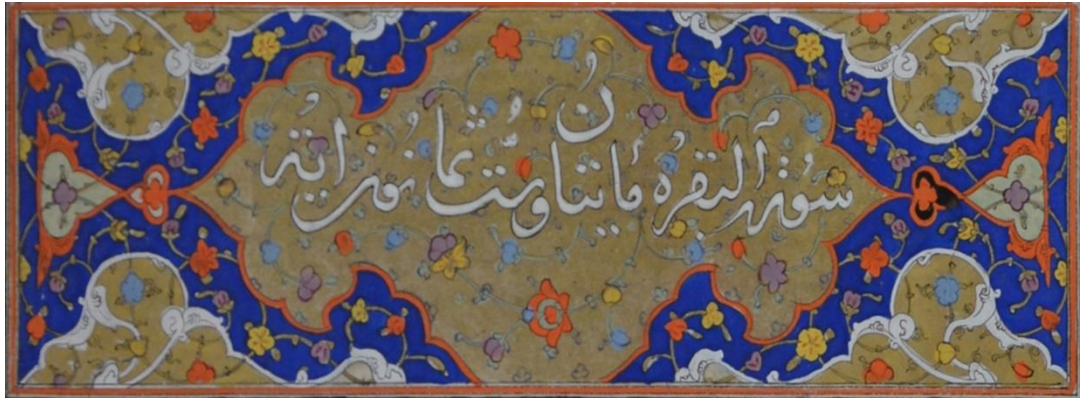 سورة البقره مأيتان وست وثمانون اية